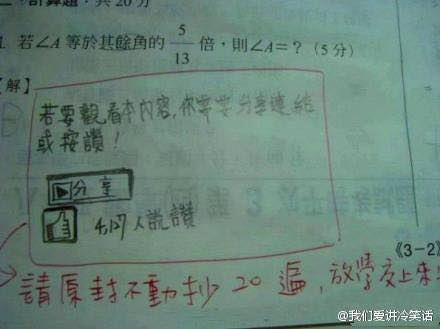 計算題：共20分
1. 若∠A 等於其餘角的 5/13 倍，則∠A＝？（5分）
【解】
若要觀看本內容，你需要分享連結
或按讚！
分享
4,127人說讚
《3-2》
請原封不動抄20遍，放學交上來
@我们爱讲冷笑话